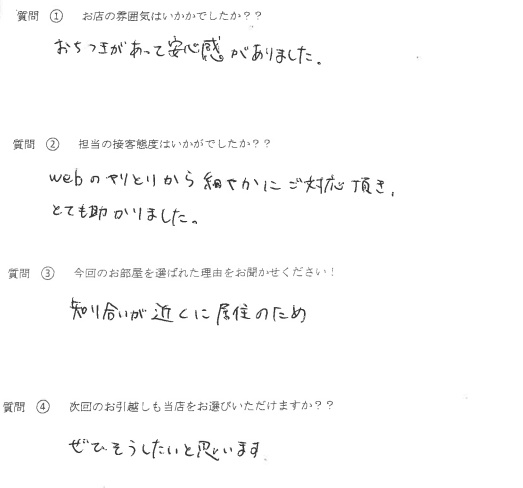 質問 ① お店の雰囲気はいかかでしたか??
おちつきがあって安心感がありました。
質問 ② 担当の接客態度はいかがでしたか??
webのやりとりから細やかにご対応頂き、
とても助かりました。
質問 ③ 今回のお部屋を選ばれた理由をお聞かせください!
知り合いが近くに居住のため
質問 ④ 次回のお引越しも当店をお選びいただけますか??
ぜひそうしたいと思います